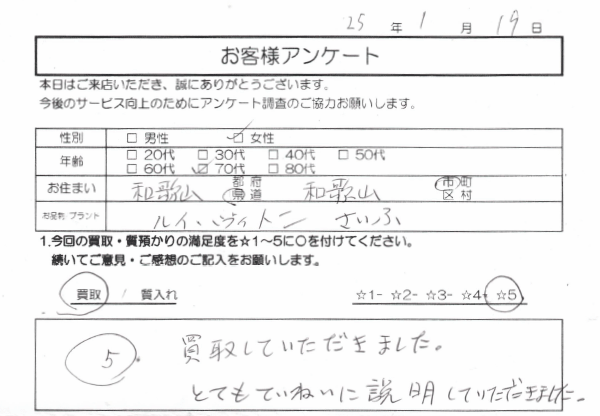 25年1月19日
お客様アンケート
本日はご来店いただき、誠にありがとうございます。
今後のサービス向上のためにアンケート調査のご協力お願いします。
性別 □ 男性 ☑ 女性
年齢 □ 20代 □ 30代 □ 40代 □ 50代
□ 60代 ☑ 70代 □ 80代
お住まい 和歌山 都府県道 和歌山 市町区村
お品物 ブランド ルイ・ヴィトン さいふ
1.今回の買取・質預かりの満足度を☆1〜5に○を付けてください。
続いてご意見・ご感想のご記入をお願いします。
買取 / 質入れ ☆1- ☆2- ☆3- ☆4- ☆5
5. 買取していただきました。
とてもていねいに説明していただきました。